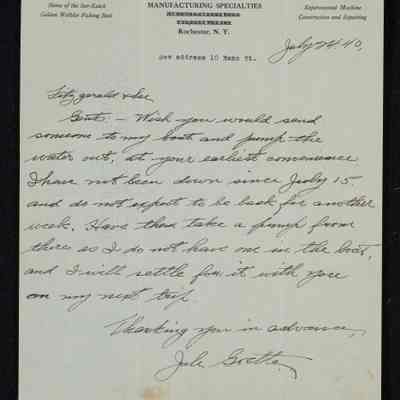 Home of the Sur-Katch
Golden Wobbler Fishing Bait
MANUFACTURING SPECIALTIES
Rochester, N. Y.
Experimental Machine
Construction and Repairing
New address 10 Mann St.
July 24 40,
Fitzgerald & Lee
Gents:- Wish you would send
someone to my boat and pump the
water out, at your earliest convenience
I have not been down since July 15
and do not expect to be back for another
week. Have them take a pump from
there as I do not have one in the boat,
and I will settle for it with you
on my next trip.
Thanking you in advance,
Jule